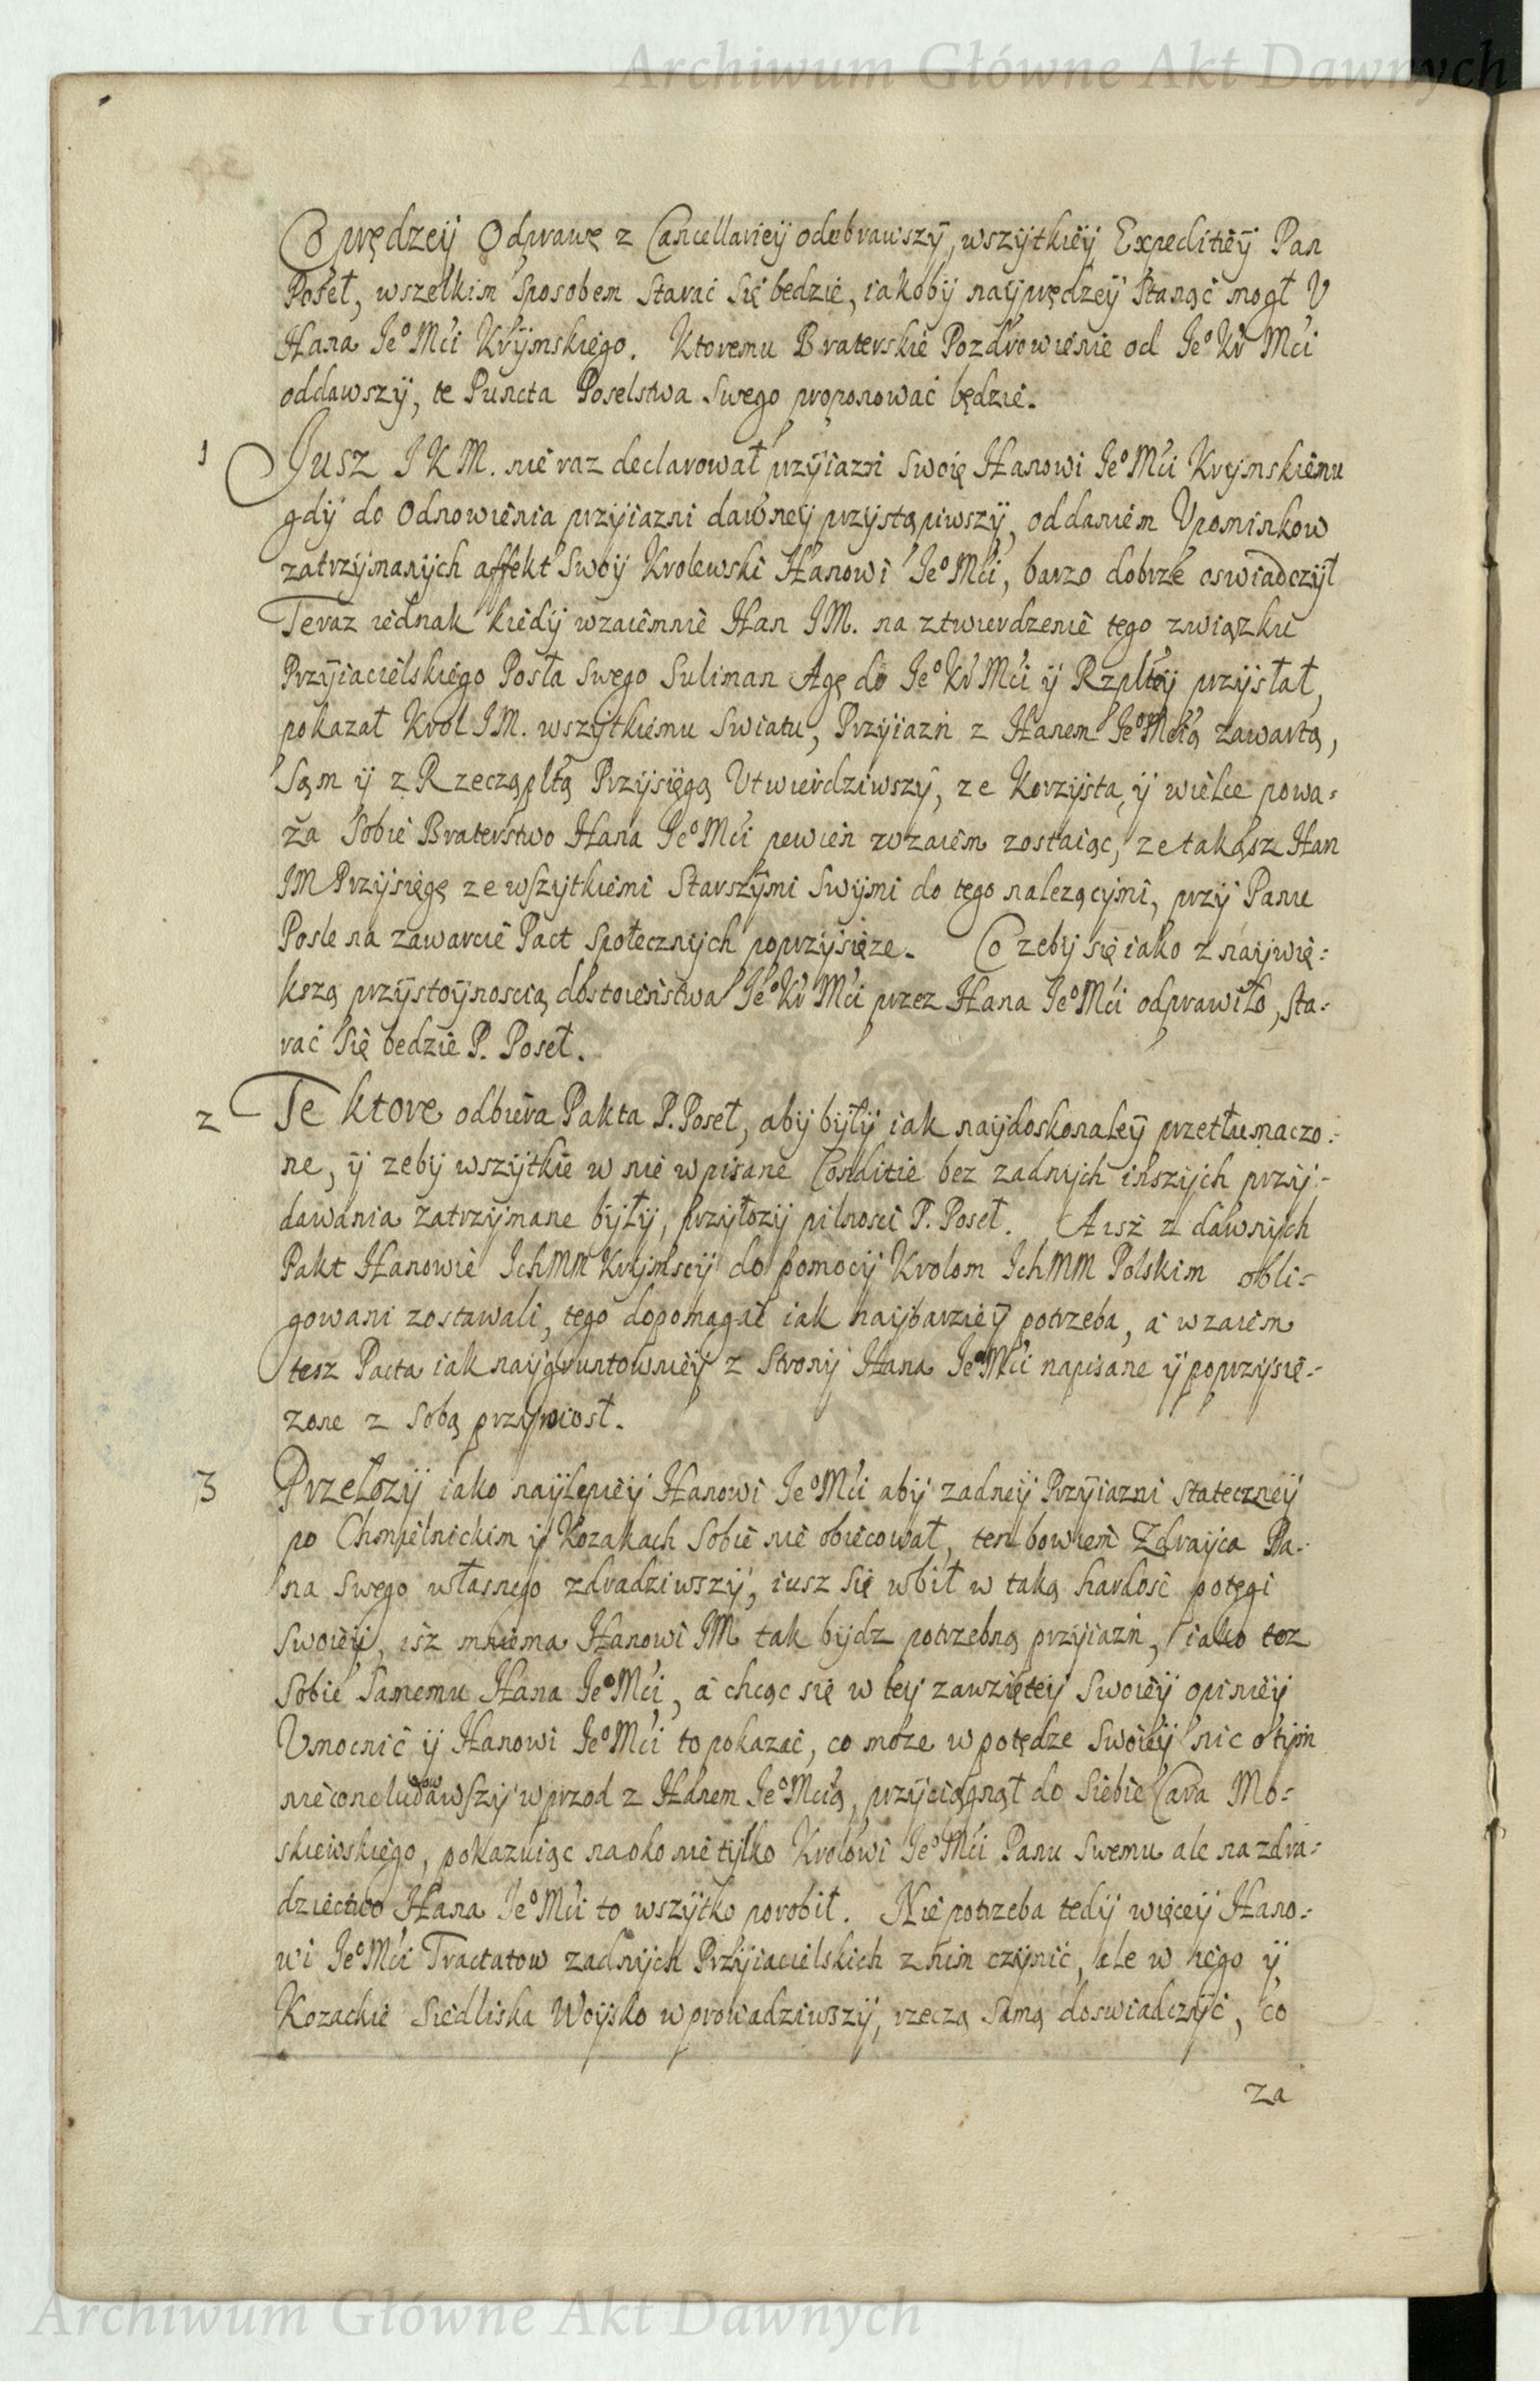 Archiwum Główne Akt Dawnych
Co prędzeÿ Odprawę z Cancellarieÿ odebrawszÿ, wszÿtkieÿ Expeditieÿ Pan
Poseł, wszelkim sposobem starać się bedzie, iakobÿ naÿprędzeÿ stanąć mogł V
Hana Jeº Mći Krÿmskiego. Ktoremu Braterskie Pozdrowienie od Jeº Kr Mći
oddawszÿ, te Puncta Poselstwa Swego proponować będzie.
1 Jusz J K M. nie raz declarował przÿiazń swoię Hanowi Jeº Mći Krÿmskiemu
gdÿ do Odnowienia przÿiazni dawneÿ przÿstąpiwszÿ, oddaniem Vpominkow
zatrzÿmanÿch affekt Swoÿ Krolewski Hanowi Jeº Mći, barzo dobrze oswiadczÿł
Teraz iednak kiedÿ wzaiemnie Han JM. na ztwierdzenie tego związku
Przÿiacielskiego Posła Swego Suliman Agę do Jeº Kr Mći ÿ Rzpltey przÿsłał,
pokazał Krol JM. wszÿtkiemu Swiatu, Przÿiazń z Hanem Jeº Mcią zawartą,
Sąm ÿ z Rzecząpltą Przÿsięgą Vtwierdziwszÿ, ze Korzÿsta, ÿ wielce powa-
ża Sobie Braterstwo Hana Jeº Mći pewien wzaiem zostaiąc, ze takąsz Han
JM Przÿsięgę ze wszÿtkiemi Starszÿmi Swÿmi do tego nalezącÿmi, przÿ Panu
Posle na zawarcie Pact społecznÿch poprzÿsięze. Co zebÿ się iako z naÿwię-
kszą przÿstoÿnoscią dostoieństwa Jeº Kr Mći przez Hana Jeº Mći odprawiło, sta-
rać się bedzie P. Poseł.
2 Te ktore odbiera Pakta P. Poseł, abÿ bÿłÿ iak naÿdoskonaleÿ przetłumaczo-
ne, ÿ zebÿ wszÿtkie w nie wpisane Conditie bez zadnÿch inszÿch przÿ-
dawania zatrzÿmane bÿłÿ, przÿłozÿ pilnosci P. Poseł. A isz z dawnÿch
Pakt Hanowie IchMM Krÿmscÿ do pomocÿ Krolom IchMM Polskim obli-
gowani zostawali, tego dopomagać iak naÿbarzieÿ potrzeba, a wzaiem
tesz Pacta iak naÿgruntownieÿ z Stronÿ Hana Jeº Mći napisane ÿ poprzÿsię-
zone z sobą przÿniosł.
3 Przełozÿ iako naÿlepieÿ Hanowi Jeº Mći abÿ zadneÿ Przÿiazni stateczneÿ
po Chmielnickim ÿ Kozakach Sobie nie obiecował, ten bowiem Zdraÿca Pa-
na Swego własnego zdradziwszÿ, iusz się wbił w taką hardość potęgi
Swoieÿ, isz mniema Hanowi JM tak bÿdz potrzebną przÿiazń, iako tez
Sobie Samemu Hana Jeº Mći, a chcąc się w teÿ zawzięteÿ Swoieÿ opinieÿ
Vmocnić ÿ Hanowi Jeº Mći to pokazać, co może w potędze Swoieÿ nic o tÿm
nieconcludowawszÿ wprzod z Hanem Jeº Mcią, przÿciągnął do Siebie Cara Mo-
skiewskiego, pokazuiąc na oko nie tÿlko Krolowi Jeº Mći Panu Swemu ale na zdra-
dziectwo Hana Jeº Mći to wszÿtko porobił. Nie potrzeba tedÿ więceÿ Hano-
wi Jeº Mći Tractatow zadnÿch Przÿiacielskich z nim czÿnić, ale w niego ÿ
Kozackie Siedliska Woÿsko wprowadziwszÿ, rzeczą Samą doswiadczÿć, co
za
Archiwum Główne Akt Dawnych